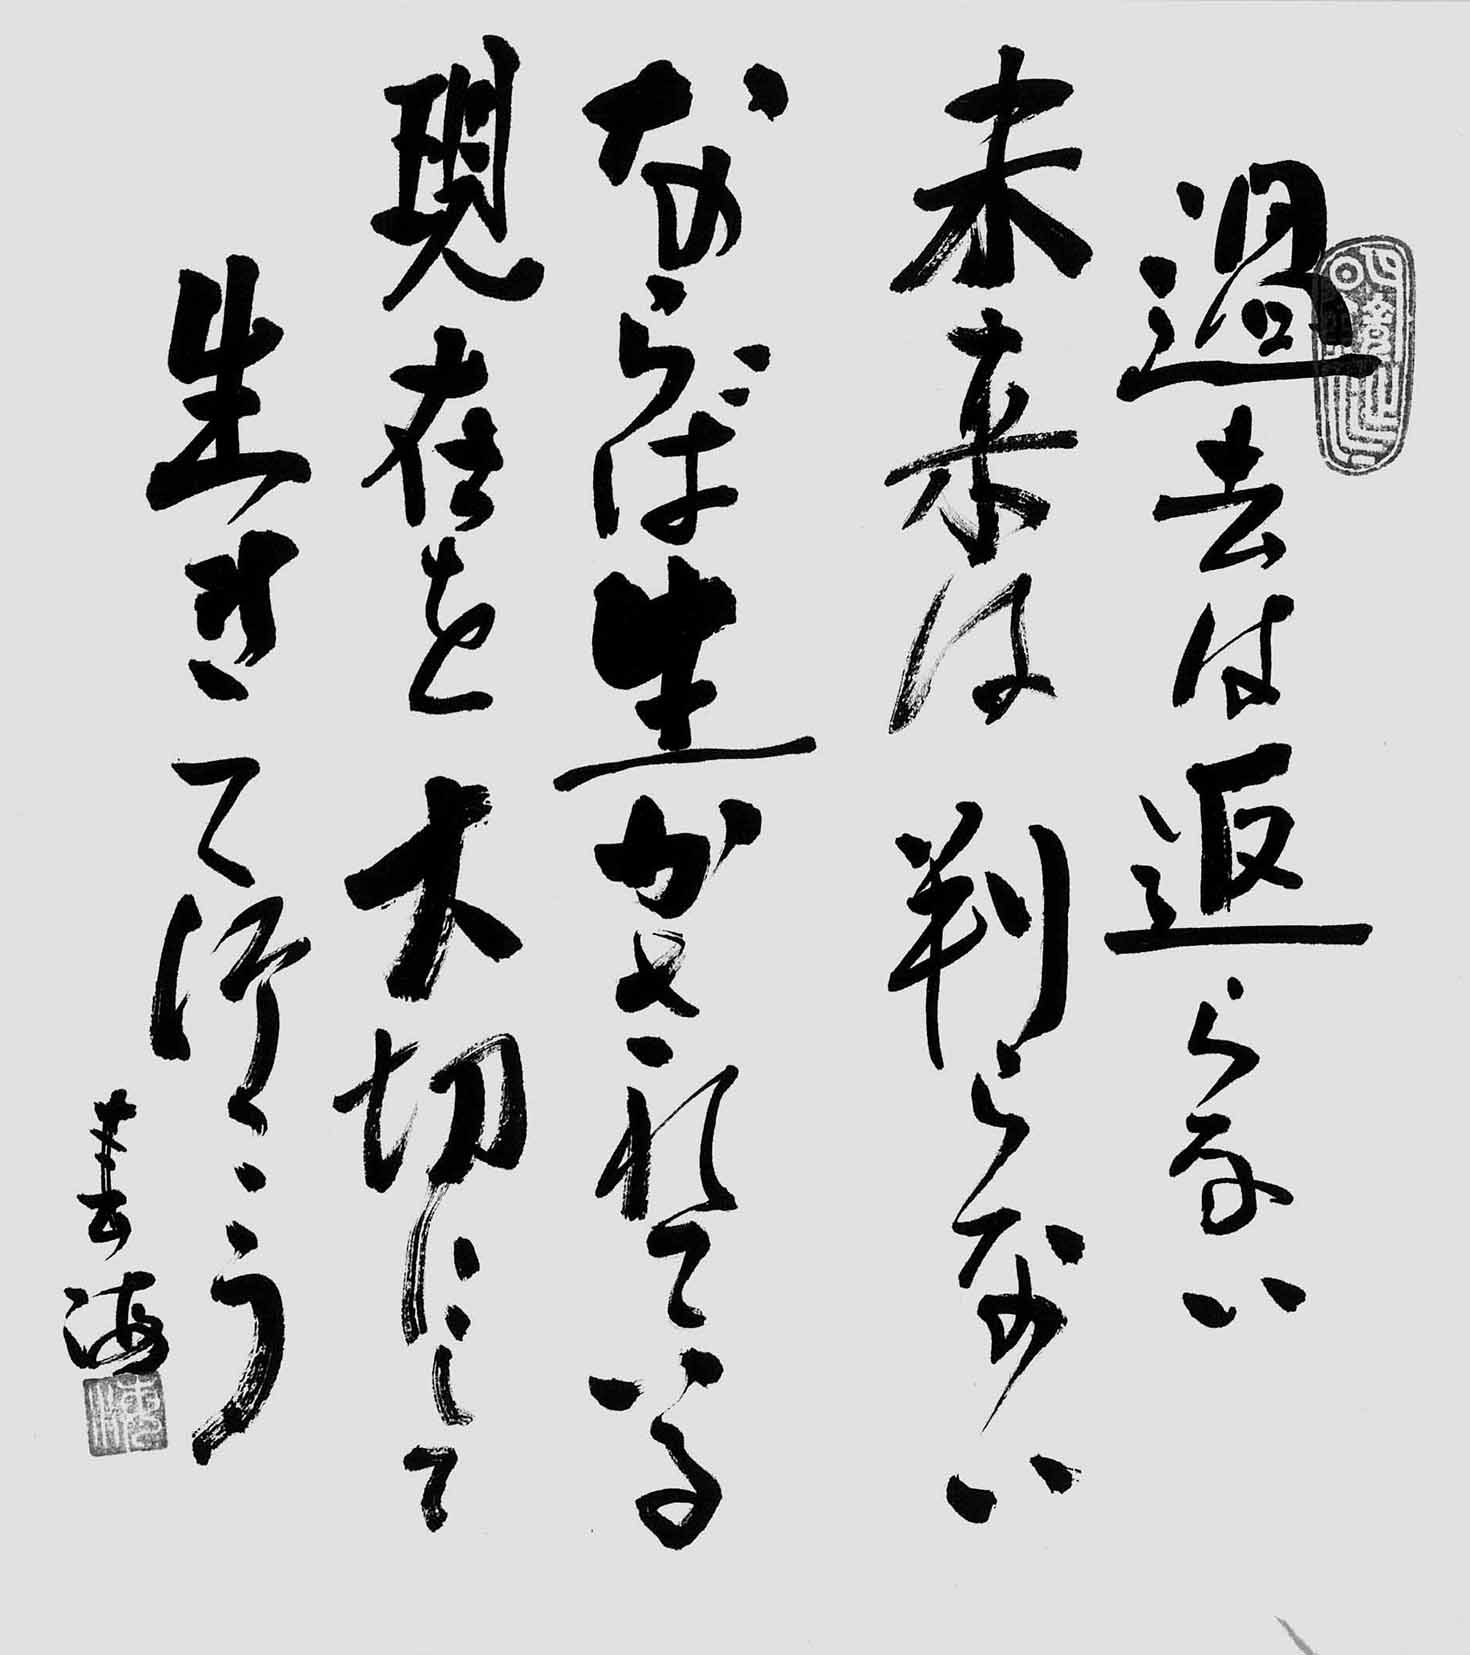 過去は返らない
未来は判らない
ならば生かされている
現在を大切にして
生きて行こう
春海